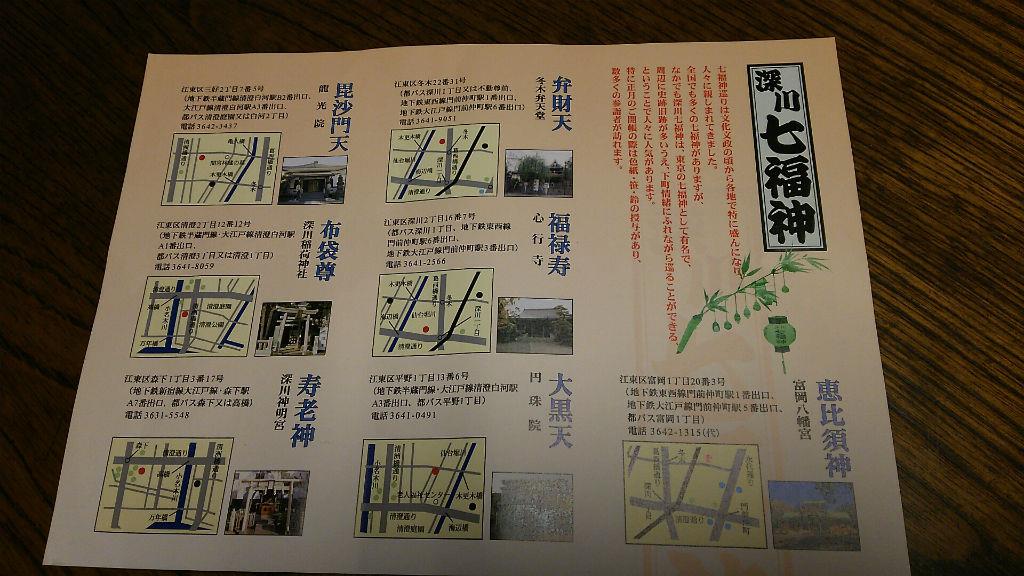 深川七福神
七福神巡りは文化文政の頃から各地で特に盛んになり、
人々に親しまれてきました。
全国でも多くの七福神がありますが、
なかでも深川七福神は、東京の七福神として有名で、
周辺に史跡旧跡が多いうえ、下町情緒にふれながら巡ることができる
ということで人々に人気があります。
特に正月のご開帳の際は色紙・笹・鈴の授与があり、
数多くの参詣者が訪れます。
恵比須神
富岡八幡宮
江東区富岡1丁目20番3号
(地下鉄東西線門前仲町駅1番出口、
地下鉄大江戸線門前仲町駅5番出口、
都バス富岡1丁目)
電話 3642-1315(代)
弁財天
冬木弁天堂
江東区冬木22番31号
(都バス深川1丁目又は不動尊前、
地下鉄東西線門前仲町駅1番出口、
地下鉄大江戸線門前仲町駅6番出口)
電話3641-9051
福禄寿
心行寺
江東区深川2丁目16番7号
(都バス深川1丁目、地下鉄東西線
門前仲町駅6番出口、
地下鉄大江戸線門前仲町駅3番出口)
電話3641-2566
大黒天
円珠院
江東区平野1丁目13番6号
(地下鉄半蔵門線・大江戸線清澄白河駅
A3番出口、都バス平野1丁目)
電話3641-0491
毘沙門天
龍光院
江東区三好2丁目7番5号
(地下鉄半蔵門線清澄白河駅B2番出口、
大江戸線清澄白河駅A3番出口、
都バス清澄庭園又は白河2丁目)
電話 3642-3437
布袋尊
深川稲荷神社
江東区清澄2丁目12番12号
(地下鉄半蔵門線・大江戸線清澄白河駅
A1番出口、
都バス清澄3丁目又は清澄1丁目)
電話 3641-8059
寿老神
深川神明宮
江東区森下1丁目3番17号
(地下鉄新宿線大江戸線・森下駅
A7番出口、都バス森下又は高橋)
電話 3631-5548
亀久橋
木更木橋
冬木
木更木橋
冬木
仙台堀川
海辺橋
葛西橋通り
清澄通り
木更木橋
冬木
海辺橋
仙台堀川
清澄通り
清澄庭園
清澄公園
万年橋
森下
清澄通り
高橋
小名木川
万年橋
清洲橋通り
小名木川
仙台堀川
老人福祉センター
木更木橋
清澄通り
清澄庭園
海辺橋
冬木
清澄通り